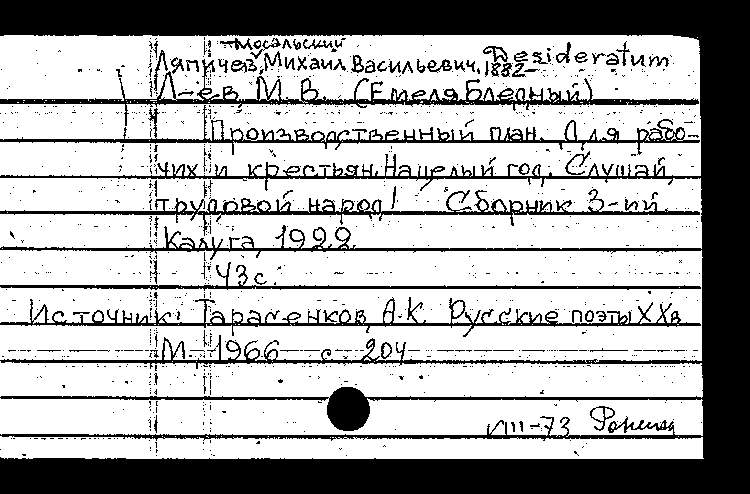 -Мосальский
Ляпичев, Михаил Васильевич, 1882-
Desideratum
Л-ев, М. В. (Емеля Бледный)
Производственный план. Для рабо-
чих и крестьян. На целый год. Слушай,
трудовой народ! Сборник 3-ий.
Калуга, 1922.
43 с.
Источник: Тарасенков, А.К. Русские поэты XX в.
М., 1966 с. 204.
VIII-73